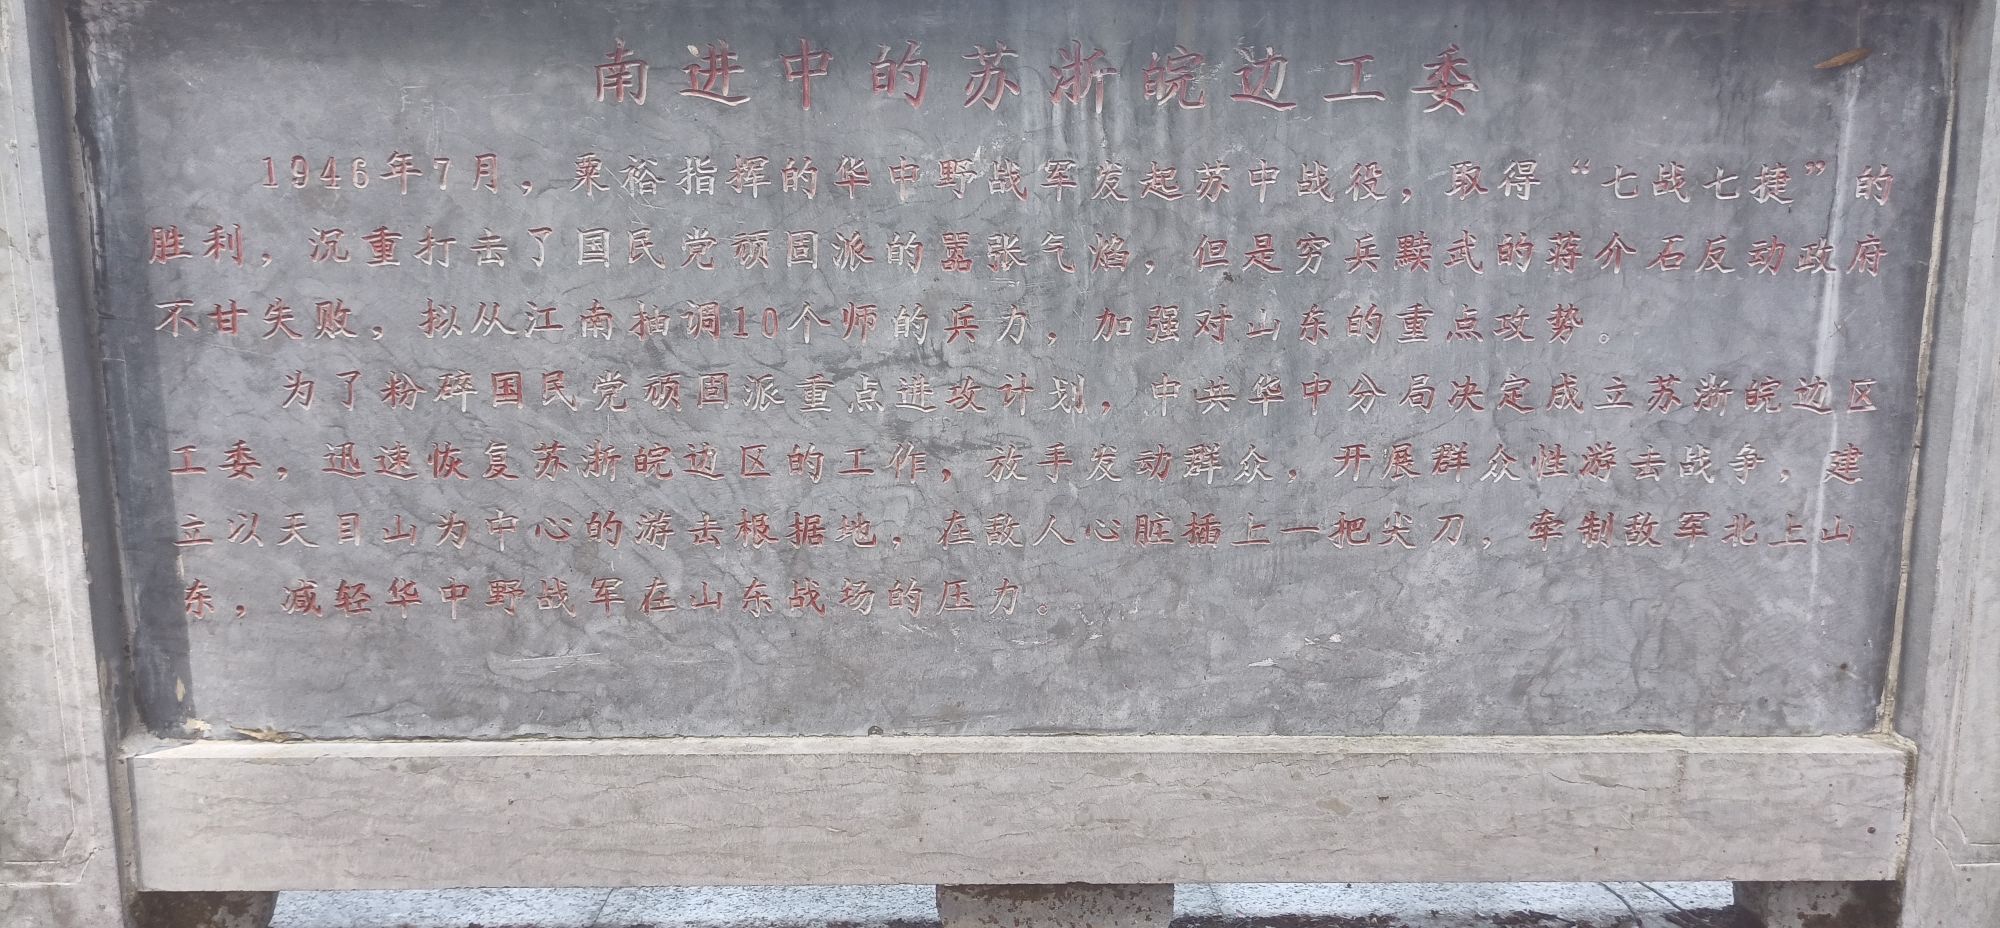 南进中的苏浙皖边工委
1946年7月，粟裕指挥的华中野战军发起苏中战役，取得“七战七捷”的
胜利，沉重打击了国民党顽固派的嚣张气焰，但是穷兵黩武的蒋介石反动政府
不甘失败，拟从江南抽调10个师的兵力，加强对山东的重点攻势。
为了粉碎国民党顽固派重点进攻计划，中共华中分局决定成立苏浙皖边区
工委，迅速恢复苏浙皖边区的工作，放手发动群众，开展群众性游击战争，建
立以天目山为中心的游击根据地，在敌人心脏插上一把尖刀，牵制敌军北上山
东，减轻华中野战军在山东战场的压力。